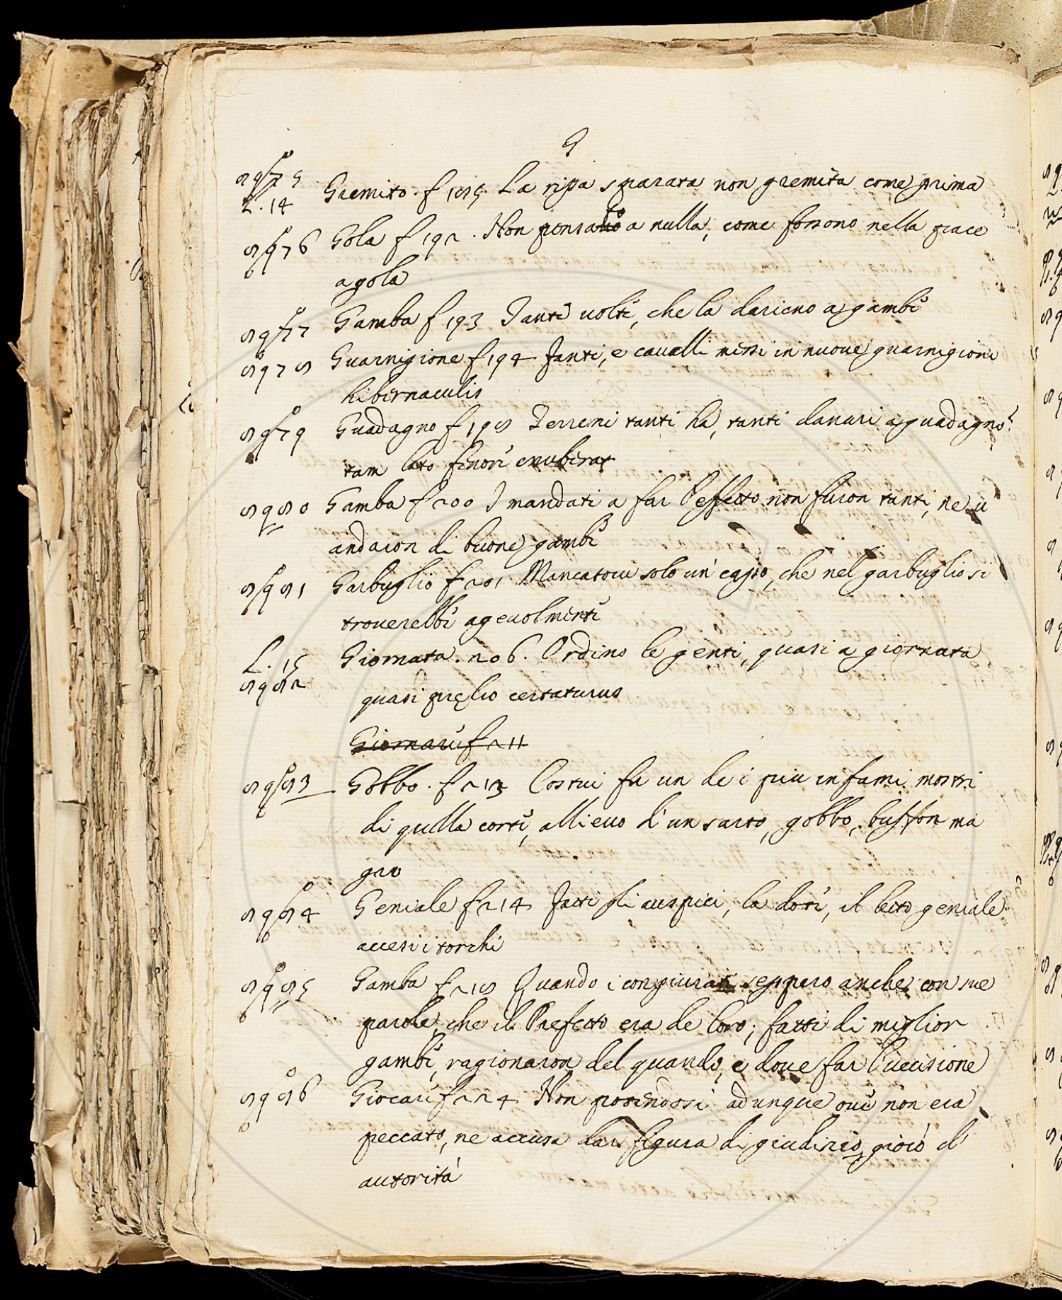 G
L. 14 Gremito. f 185. La ripa sparata non gremita come prima
Gola f 192. Non pensando a nulla, come fossono nella pace
a gola
Gamba f 193 Tante volte, che la darieno a gambe
Guarnigione f 194 fanti, e cavalli messi in nuove guarnigioni
hibernaculis
Guadagno f 198 Terreni tanti ha, tanti danari a guadagno.
tam lato fenori
Gamba f 200 I mandati a far l'effetto non furon tanti, ne vi
andaron di buone gambe
Garbuglio f 201 Mancatovi solo un capo, che nel garbuglio si
troverebbe agevolmente
L. 15 Giornata. 206. Ordino le genti, quasi a giornata
quasi prelio certaturus
Giornate f 211
Gobbo. f 213 Costui fu un de i piu infami mostri
di quella corte, allievo d'un sarto, gobbo, buffon ma
gro
Geniale f 214 fatti gli auspici, la dote, il letto geniale
accesi i torchi
Gamba f 218 Quando i congiurati seppero anche con sue
parole, che il Prefetto era de loro; fatti di miglior
gambe, ragionaron del quando, e dove far l'uccisione
Giocare f 224 Non potendosi adunque ove non era
peccato, ne accusa dar figura di giudizio, giocò l'
autorità